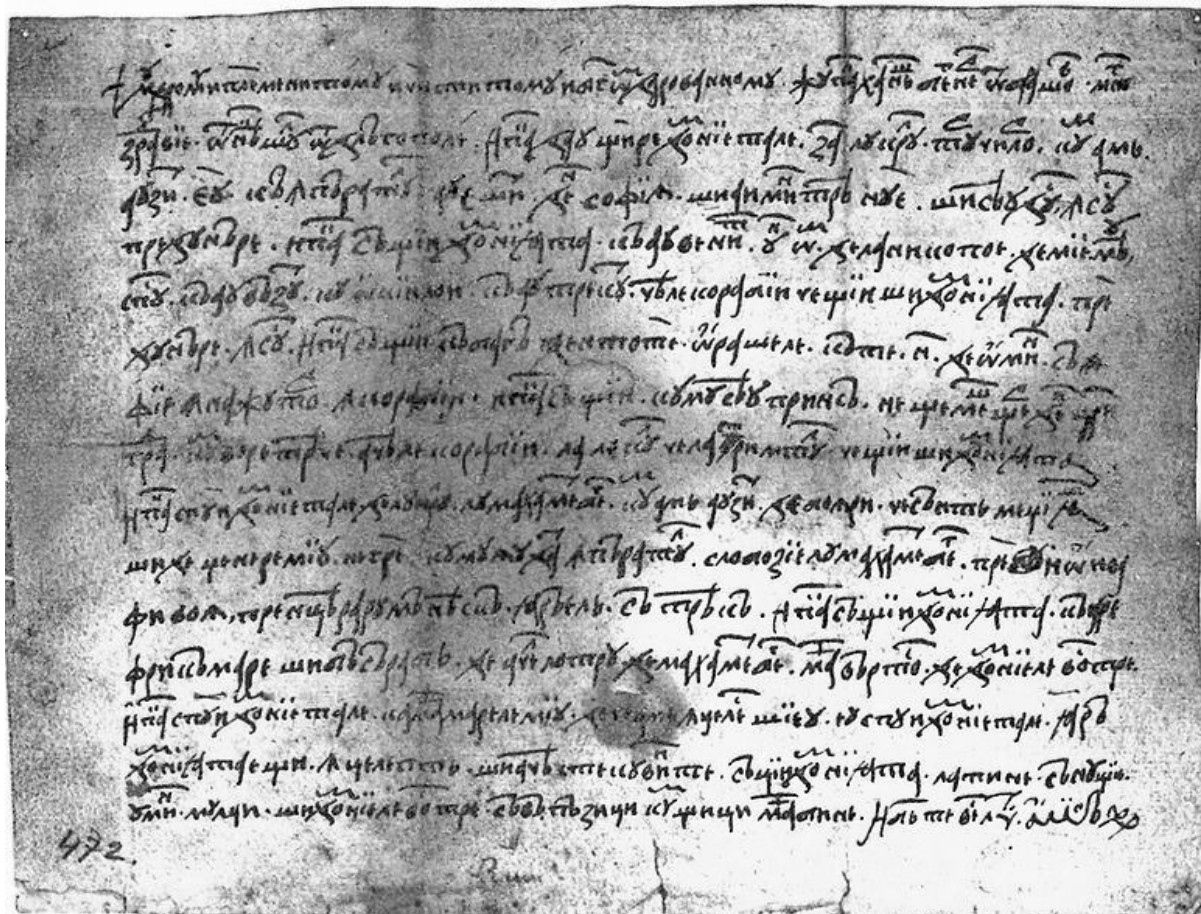 † мѹдромѹ и племенитомѹ и чиститомѹ и бг҃ѡⷨ дарованномѹ жѹпⷩа хануⷲ бегнеⷬ ѿ брашоⷡ мнⷪ҇г
здравїе ѿ нѣкшѹ ѿ длъгополе ипакⷤ даѹ щире домнїетале за лѹкрѹл тѹрчилоⷬ кѹⷨ амь
аѹзиⷮ еѹ къ ꙟпъратѹⷧ аѹ ешиⷮ деⷩ софїѧ ши аимиⷩтрѣ нѹе ши сѣѹ дѹⷭ ꙟ сѹⷭ
пре дѹнъре ипакⷤ съ щїи домнїꙗта къ аѹ венит ѹⷩ ѡⷨ де ла никопое де мїе мѣѹ
спѹⷭ къ аѹ възѹⷮ кѹ ѡкїи лои къ аѹ трекѹⷮ чѣле корабїи че щїи ши домнїꙗта пре
дѹнъре ꙟ сѹⷭ ипакⷤ съ щїи къ багъ ден тоте ѡраше́ле къте н҃ де ѡмиⷩ съ
фїе ꙟн ажѹтоⷬ ꙟ корабїи ипакⷤ съ щїи кѹмѹ сѣѹ принсь неще мещеⷬ деⷩ цари
граⷣ кѹⷨ ворь трѣче ачѣле корабїи ла локѹⷧ чела стримтѹⷧ че щїи ши домнїꙗта
ипакⷤ спѹи домнїетале де лѹкрѹⷧ лѹ махамеⷮ беⷢ кѹⷨ амь аѹзиⷮ де боꙗри че сънть меџїꙗⷲ
ши де џенере мїѹ негре кѹмѹ аѹ даⷮ ꙟпъратѹⷧ слобозїе лѹ махамеⷮ беⷢ пре ио и ва
фи воꙗ пре ꙟ цѣра рѹмънѣскъ ꙗръ ель съ трѣкъ ипакⷤ съ щїи домнїꙗта къ аре
фрикъ маре ши бъсъраⷠ де ачеⷧ лотрѹ де махамеⷮ беⷢ маи върьтоⷭ де домнїеле востре
ипакⷤ спѹи домнїетале ка маи мареле мїѹ де че амь ꙟцелеⷭ шїеѹ еѹ спѹи домнїетале ꙗръ
домнїꙗта ещи ꙟцелепть ши ачѣсте кѹвинте съ цїи домнїꙗта ла тине съ нѹ щїе
ѹмиⷩ мѹлци ши домнїеле востре съ въ пъзици кѹⷨ щици маи бине и бг҃ь те веⷭ҇лиⷮ аминь
472